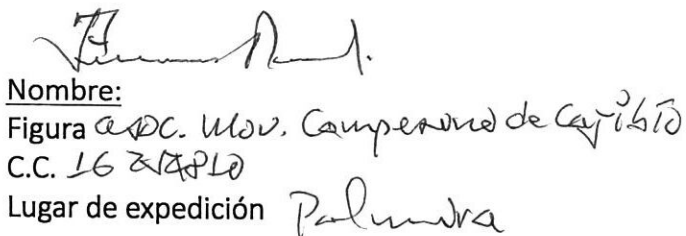 Nombre:
Figura asoc. Mov. Campesino de Cajibío
C.C. 16
Lugar de expedición Palmira